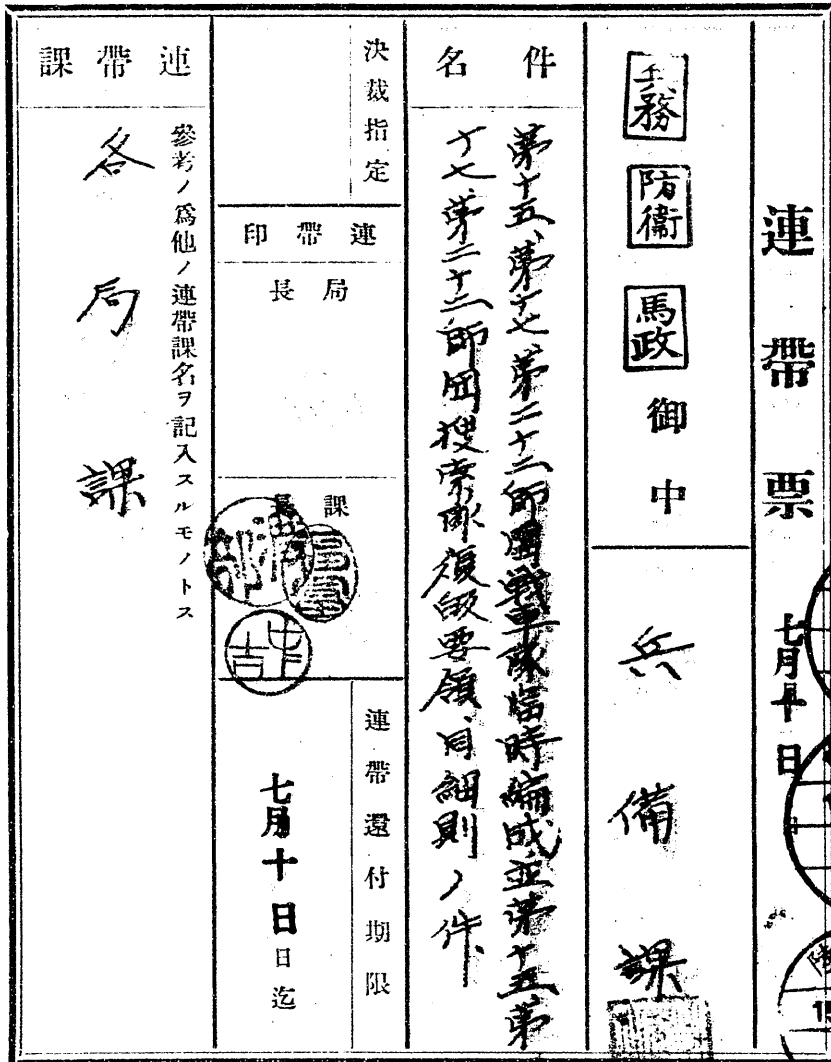 連帶票
七月十日
主務
防衞
馬政
御中
兵備課
件名
第十五、第十七、第二十二師團戰車隊臨時編成並第十五第
十七、第二十二師団搜索隊復級要領、同細則ノ件
決裁指定
連帶印
局長
課長
連帶還付期限
七月十日日迄
連帶課
參考ノ爲他ノ連帶課名ヲ記入スルモノトス
各局課